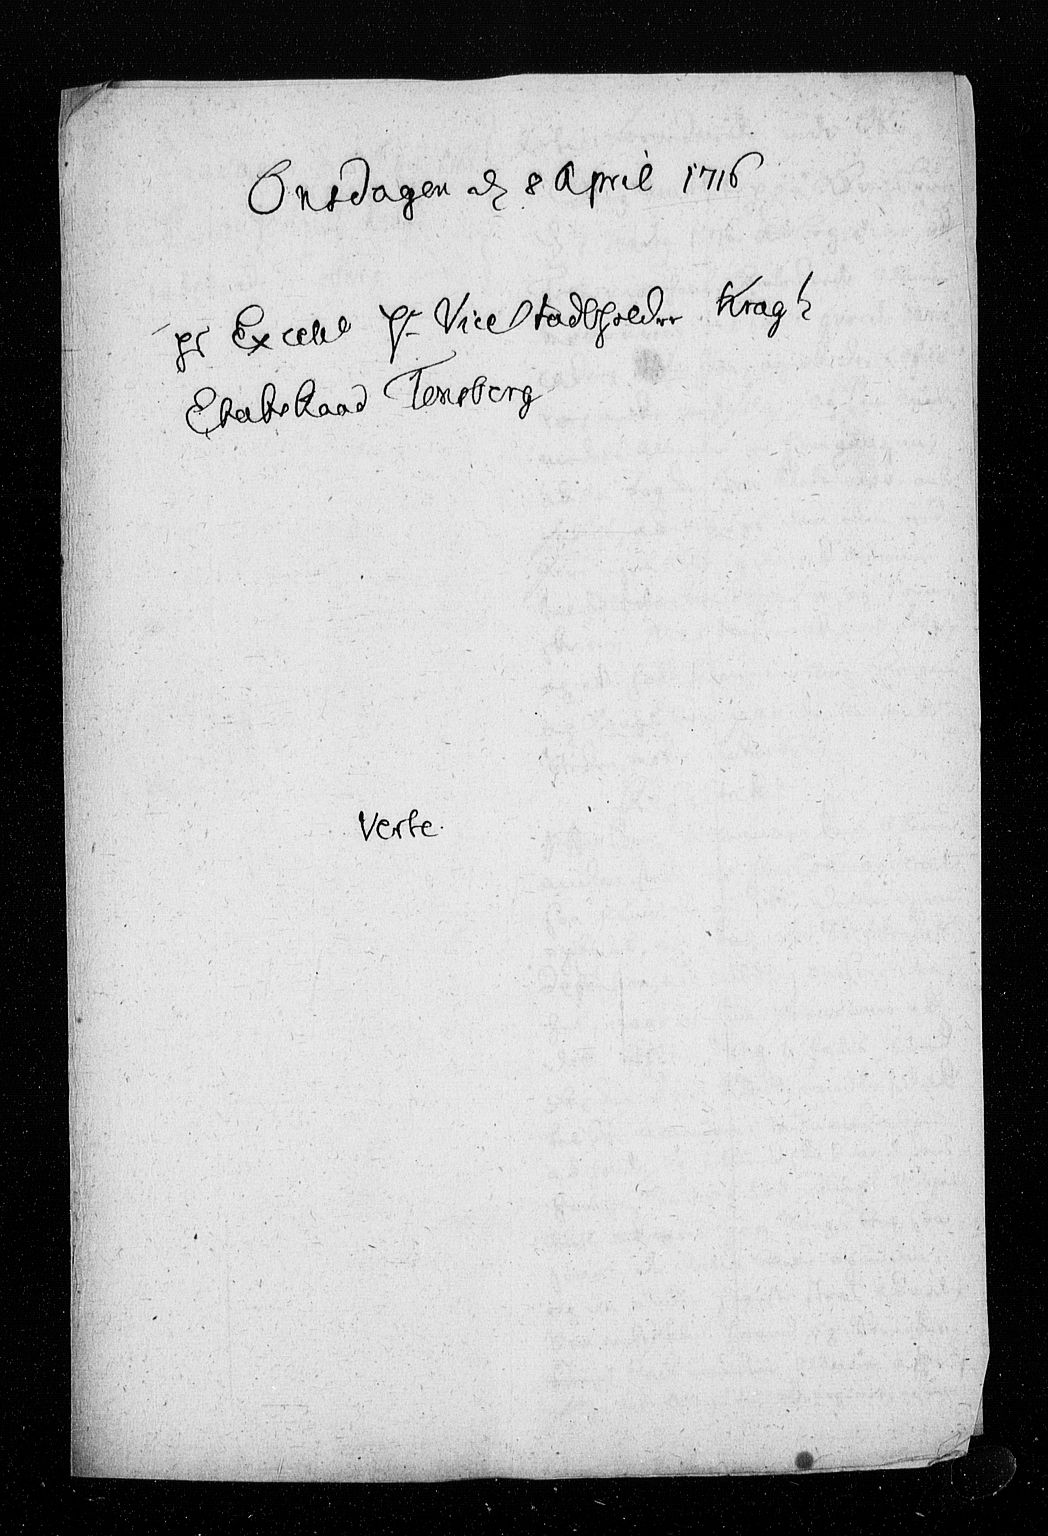 Onsdagen d 8 April 1716
hs Excell Hr Vice Stadtholder Kragh
Etatz Raad Tonsberg
Verte.